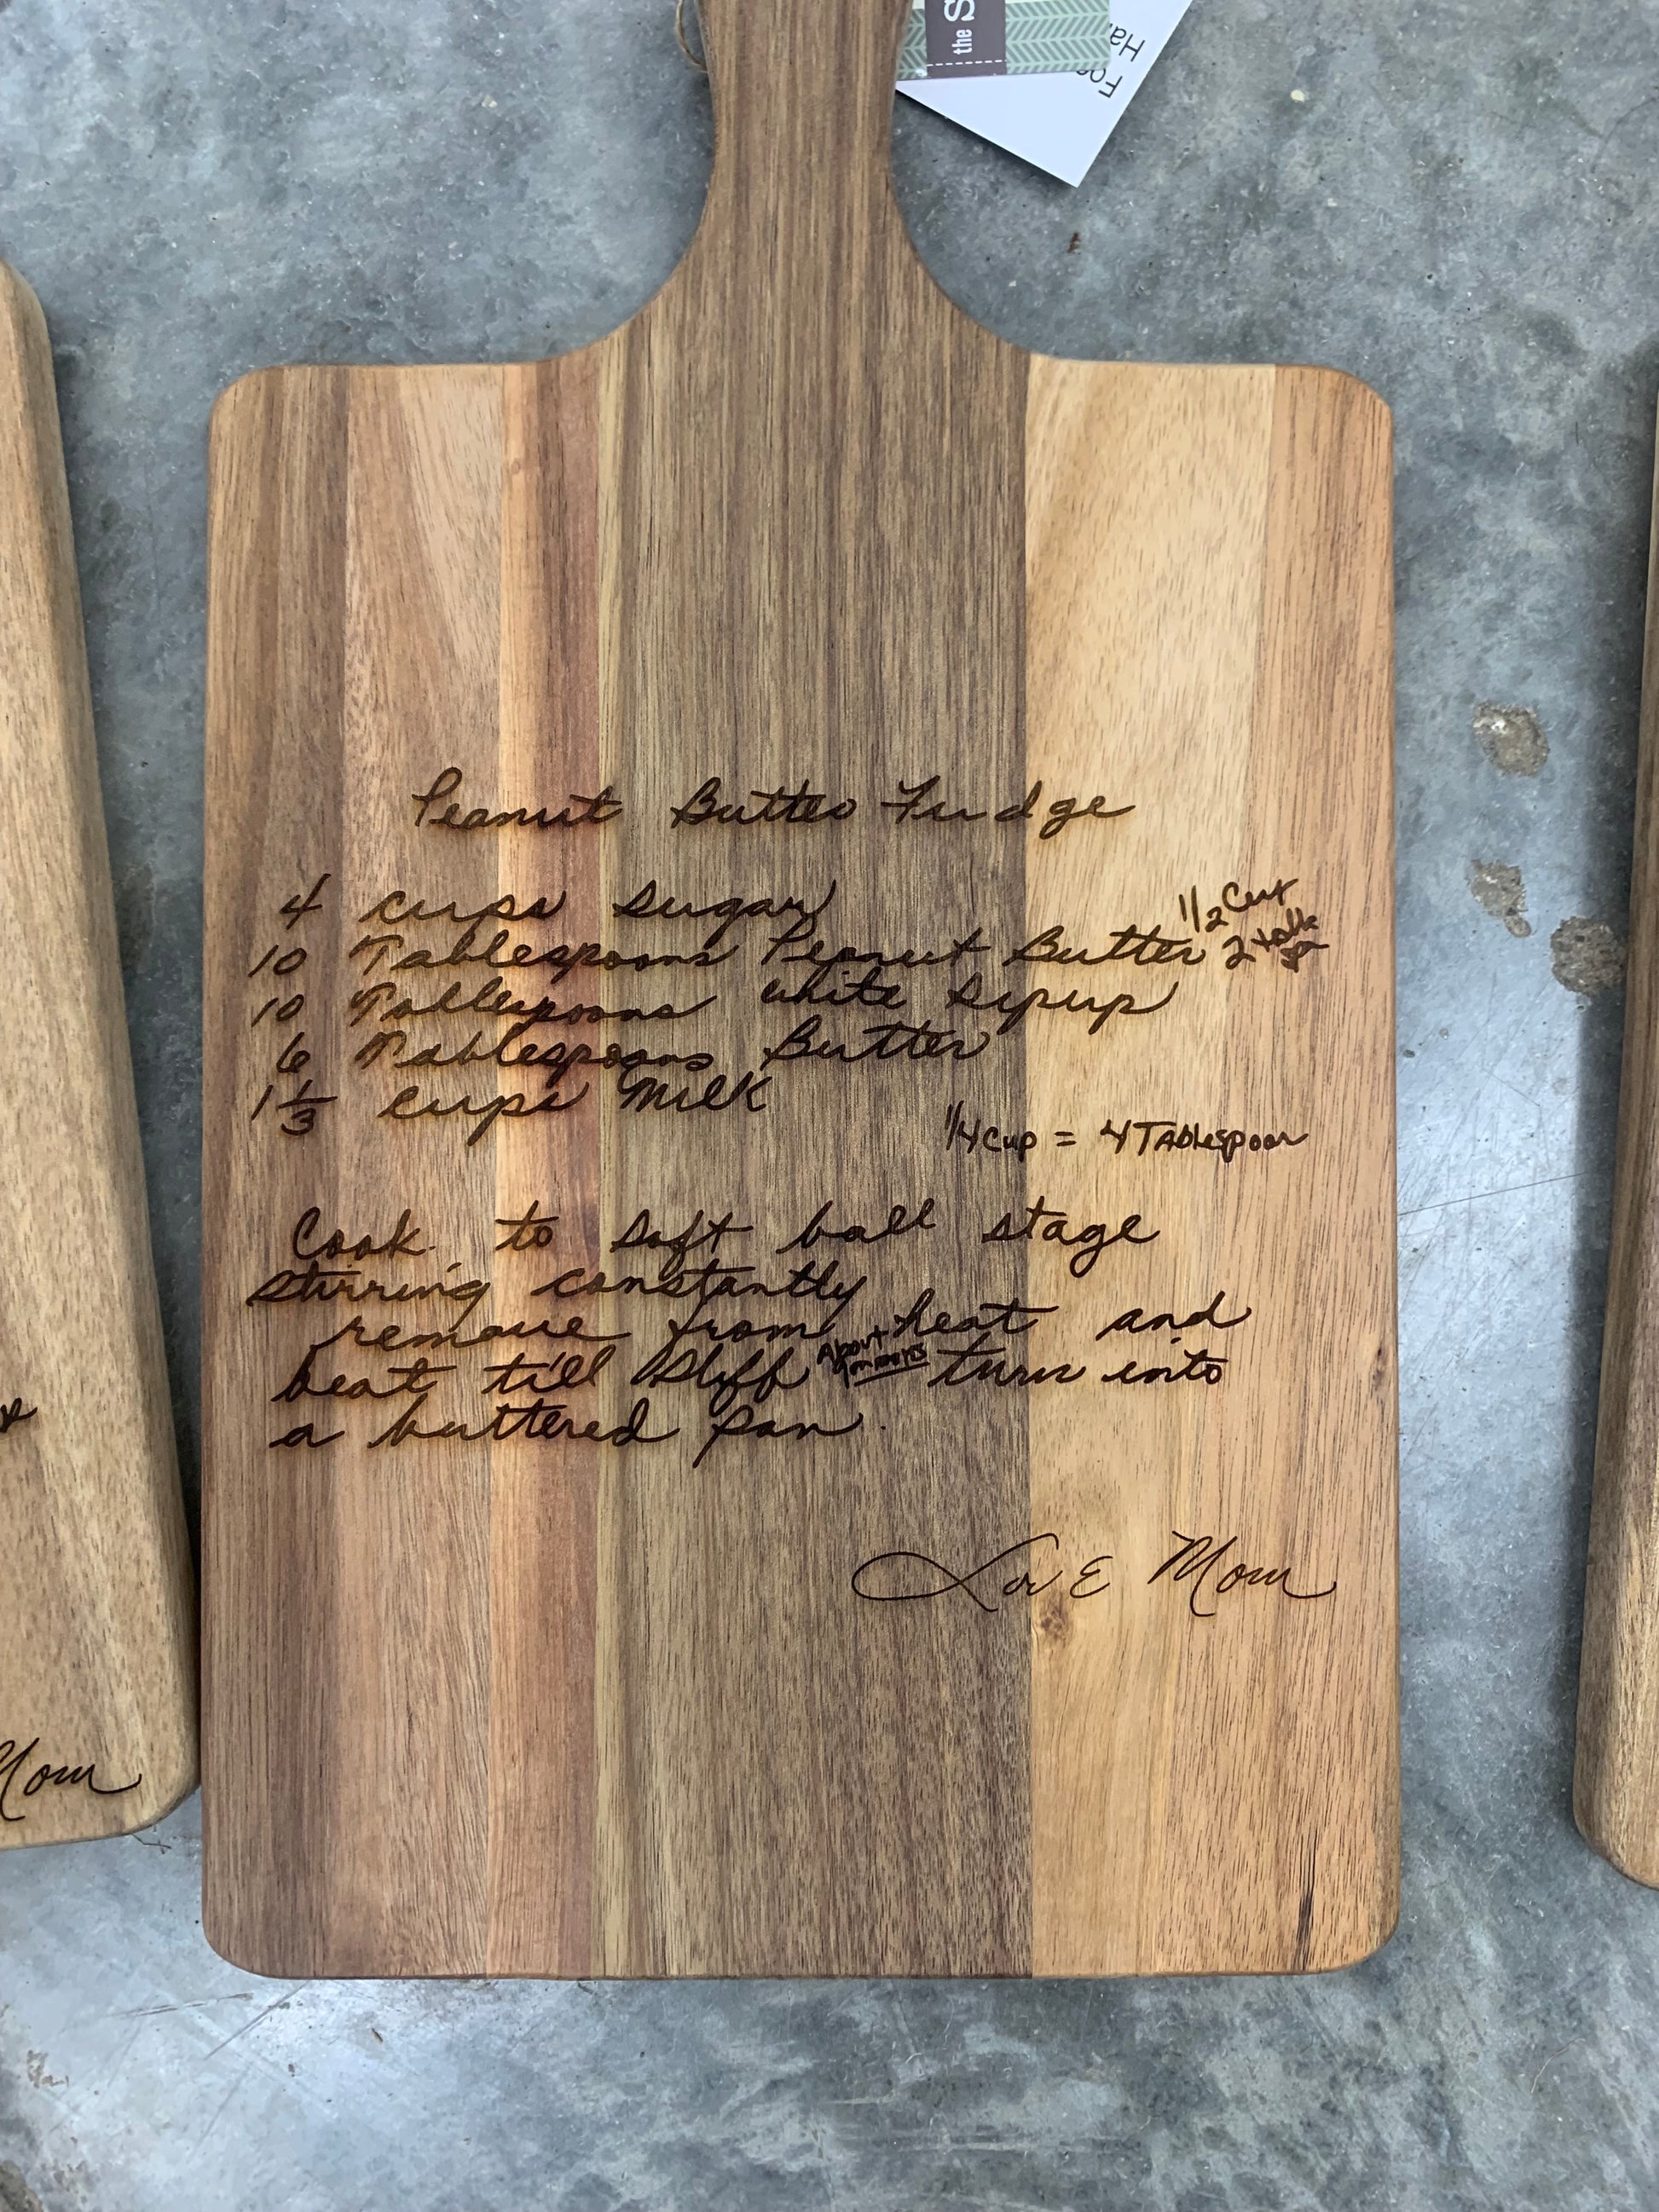 the S
Peanut Butter Fudge
4 cups sugar
1/2 Cup
10 Tablespoons Peanut Butter 2 table
10 Tablespoons white syrup
6 Tablespoons Butter
1 1/3 cups Milk
1/4 cup = 4 TAblespoon
Cook to soft ball stage
stirring constantly
remove from heat and
About
beat till stiff turn into
a buttered pan.
LovE Mom
Mom